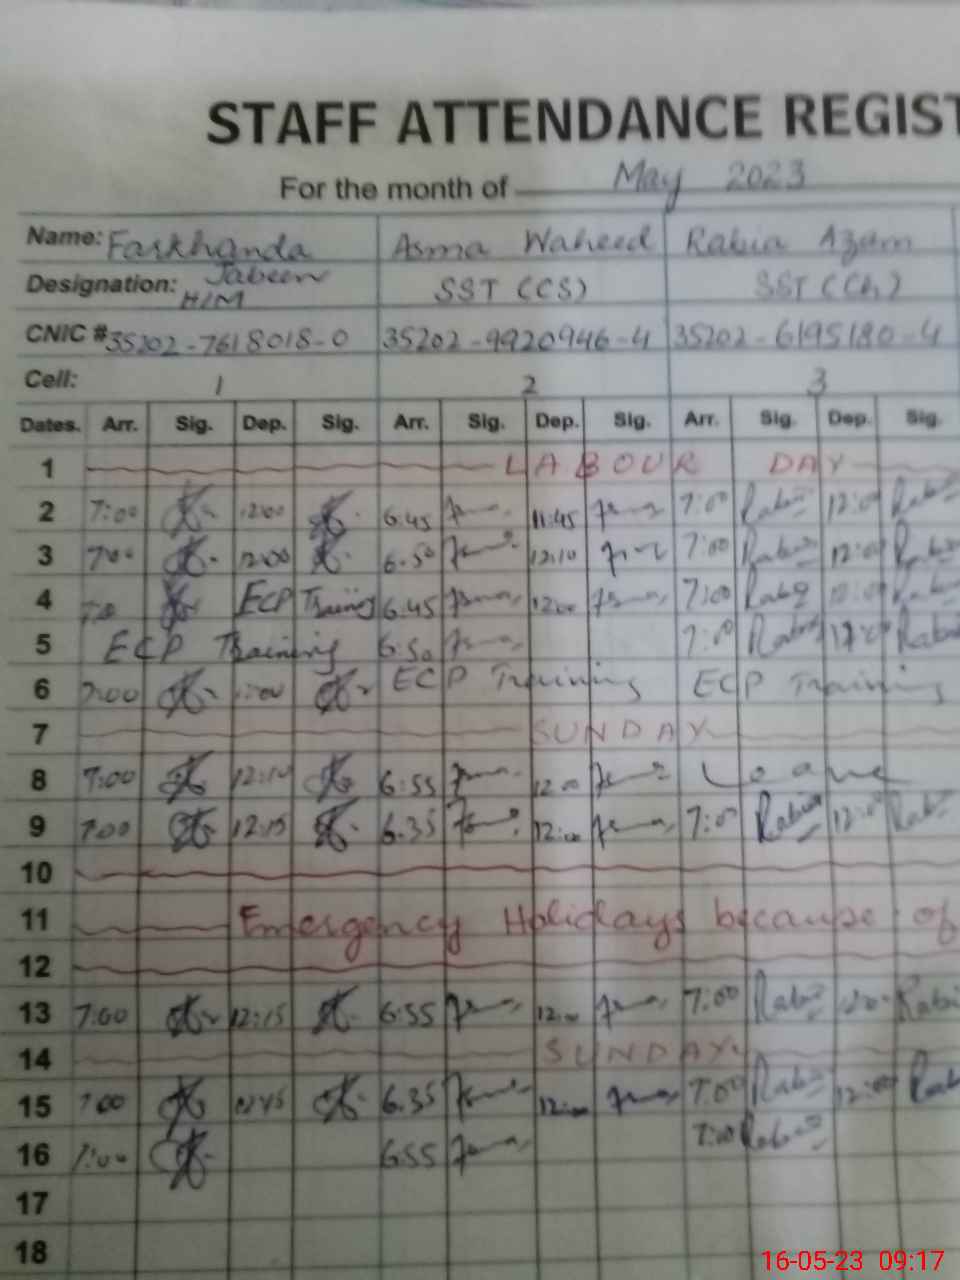 STAFF ATTENDANCE REGIST
For the month of May 2023
Name: Farkhanda Jabeen Asma Waheed Rabia Azam
Designation: H/M SST (CS) SST (Ch)
CNIC # 35202-7618018-0 35202-9920946-4 35202-6195180-4
Cell: 1 2 3
Dates. Arr. Sig. Dep. Sig. Arr. Sig. Dep. Sig. Arr. Sig. Dep. Sig.
1 LABOUR DAY
2 7:00 12:00 6:45 11:45 7:00 Rabia 12:00 Rabia
3 7:00 12:00 6.50 12:10 7:00 Rabia 12:00 Rabia
4 ECP Training 6.45 12:00 7:00 Rabia 12:00 Rabia
5 ECP Training 6:50 7:00 Rabia 12:00 Rabia
6 7:00 ECP Training ECP Training
7 SUNDAY
8 7:00 12:10 6:55 12:00 Leave
9 7:00 12:15 6.35 12:00 7:00 Rabia 12:00 Rabia
10
11 Emergency Holidays because of
12
13 7:00 12:15 6:55 12:00 7:00 Rabia Rabia
14 SUNDAY
15 7:00 6.35 12:00 7:00 Rabia 12:00 Rabia
16 7:00 6:55 7:00 Rabia
17
18
16-05-23 09:17